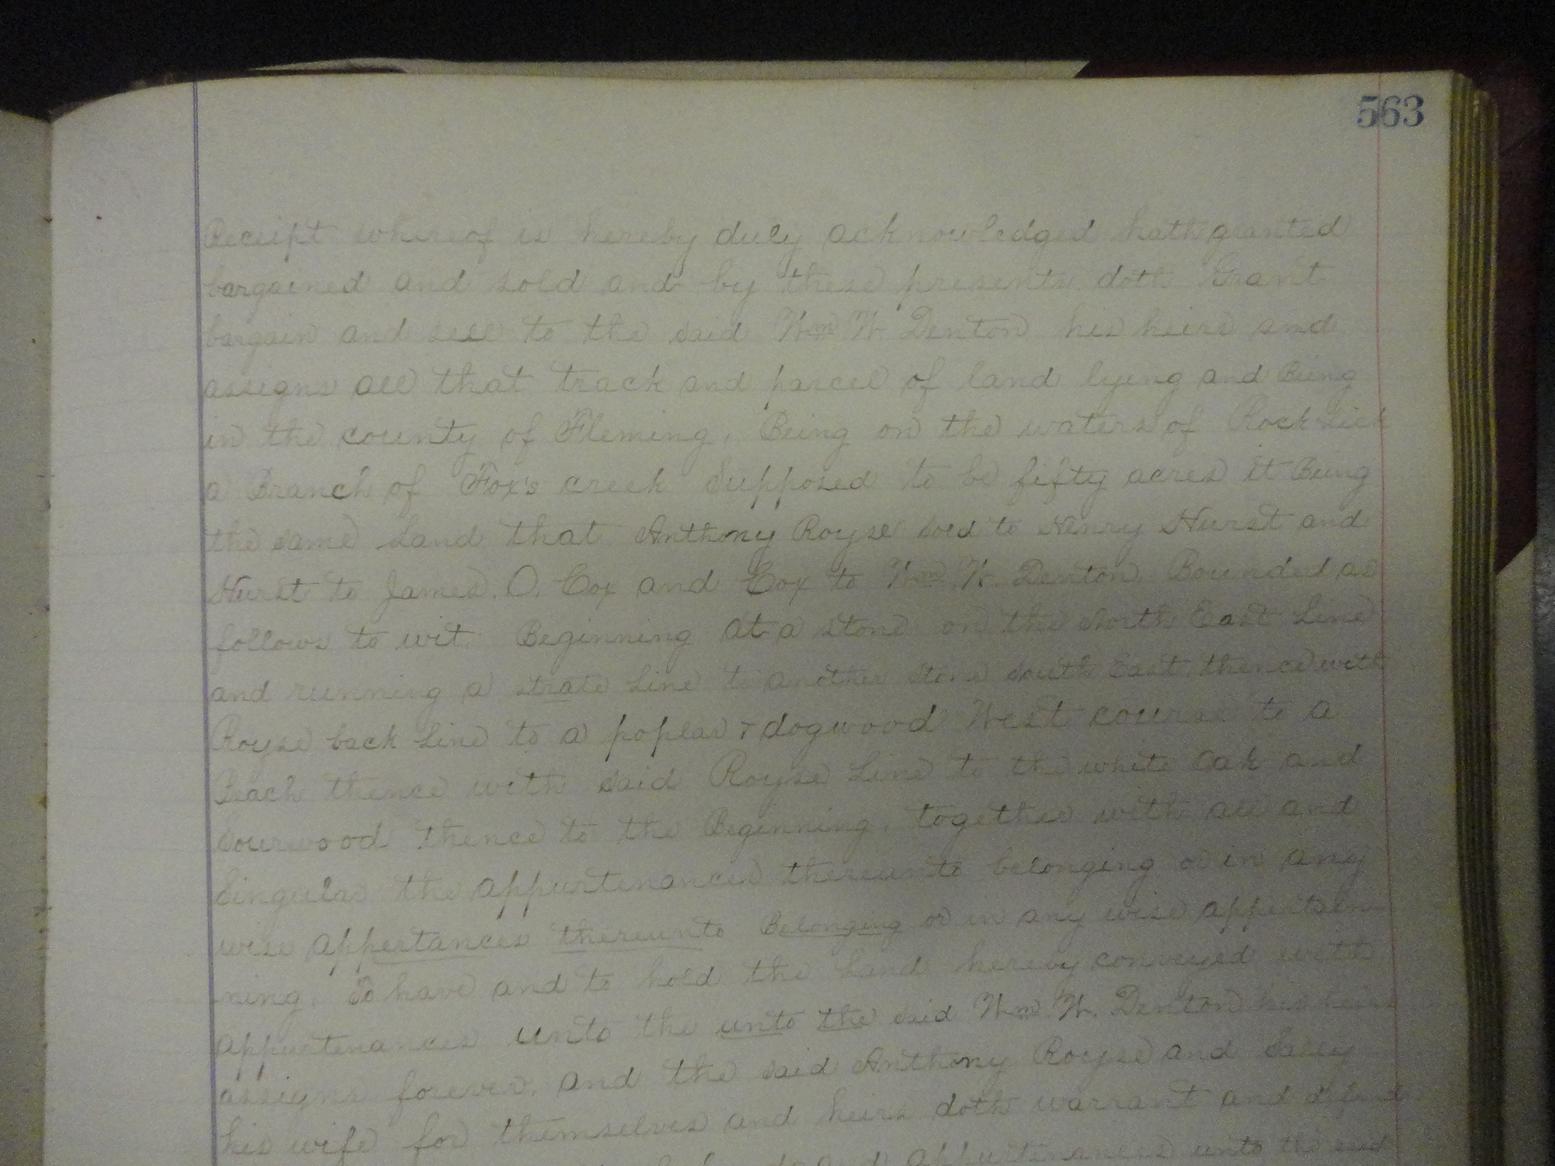 563
Receipt whereof is hereby duly acknowledged hath granted
bargained and sold and by these presents doth Grant
bargain and sell to the said Wm W. Denton his heirs and
assigns all that track and parcel of land lying and Being
in the county of Fleming, Being on the waters of Rock Lick
a Branch of Fox's creek Supposed to be fifty acres it Being
the same Land that Anthony Royse sold to Henry Hurst and
Hurst to James. O. Cox and Cox to Wm. W. Denton Bounded as
follows to wit. Beginning at a stone on the North East Line
and running a strate Line to another stone South East, thence with
Royse back Line to a poplar & dogwood West course to a
Beach thence with said Royse Line to the white Oak and
Sourwood thence to the Beginning, together with all and
Singular the appurtenances thereunto belonging or in any
wise appertances thereunto Belonging or in any wise appertain
ning. To have and to hold the Land hereby conveyed with
appurtenances unto the unto the said Wm W. Denton his heirs
assigns forever, and the said Anthony Royse and Salley
his wife for themselves and heirs doth warrant and defend
and appurtenances unto the said